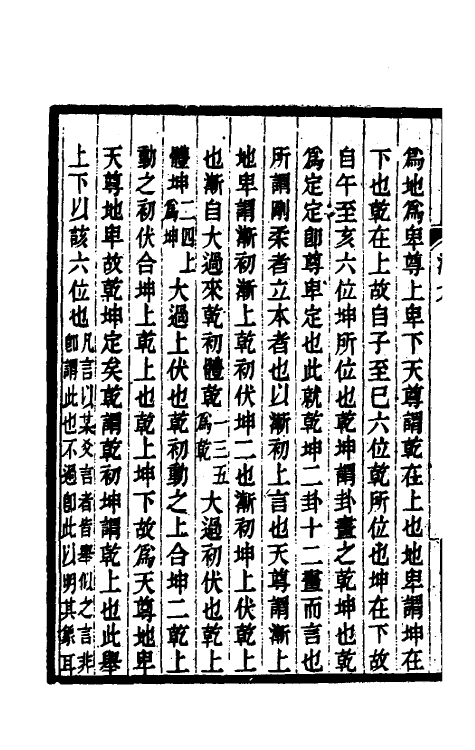 爲地爲卑尊上卑下天尊謂乾在上也地卑謂坤在
下也乾在上故自子至巳六位乾所位也坤在下故
自午至亥六位坤所位也乾坤謂卦畫之乾坤也乾
爲定定卽尊卑定也此就乾坤二卦十二畫而言也
所謂剛柔者立本者也以漸初上言也天尊謂漸上
地卑謂漸初漸上乾初伏坤二也漸初坤上伏乾上
也漸自大過來乾初體乾一三五爲乾大過初伏也乾上
體坤二四上爲坤大過上伏也乾初動之上合坤二乾上
動之初伏合坤上乾上也乾上坤下故爲天尊地卑
天尊地卑故乾坤定矣乾謂乾初坤謂乾上也此舉
上下以該六位也凡言以某爻言者皆舉似之言非卽謂此也不過卽此以明其象耳